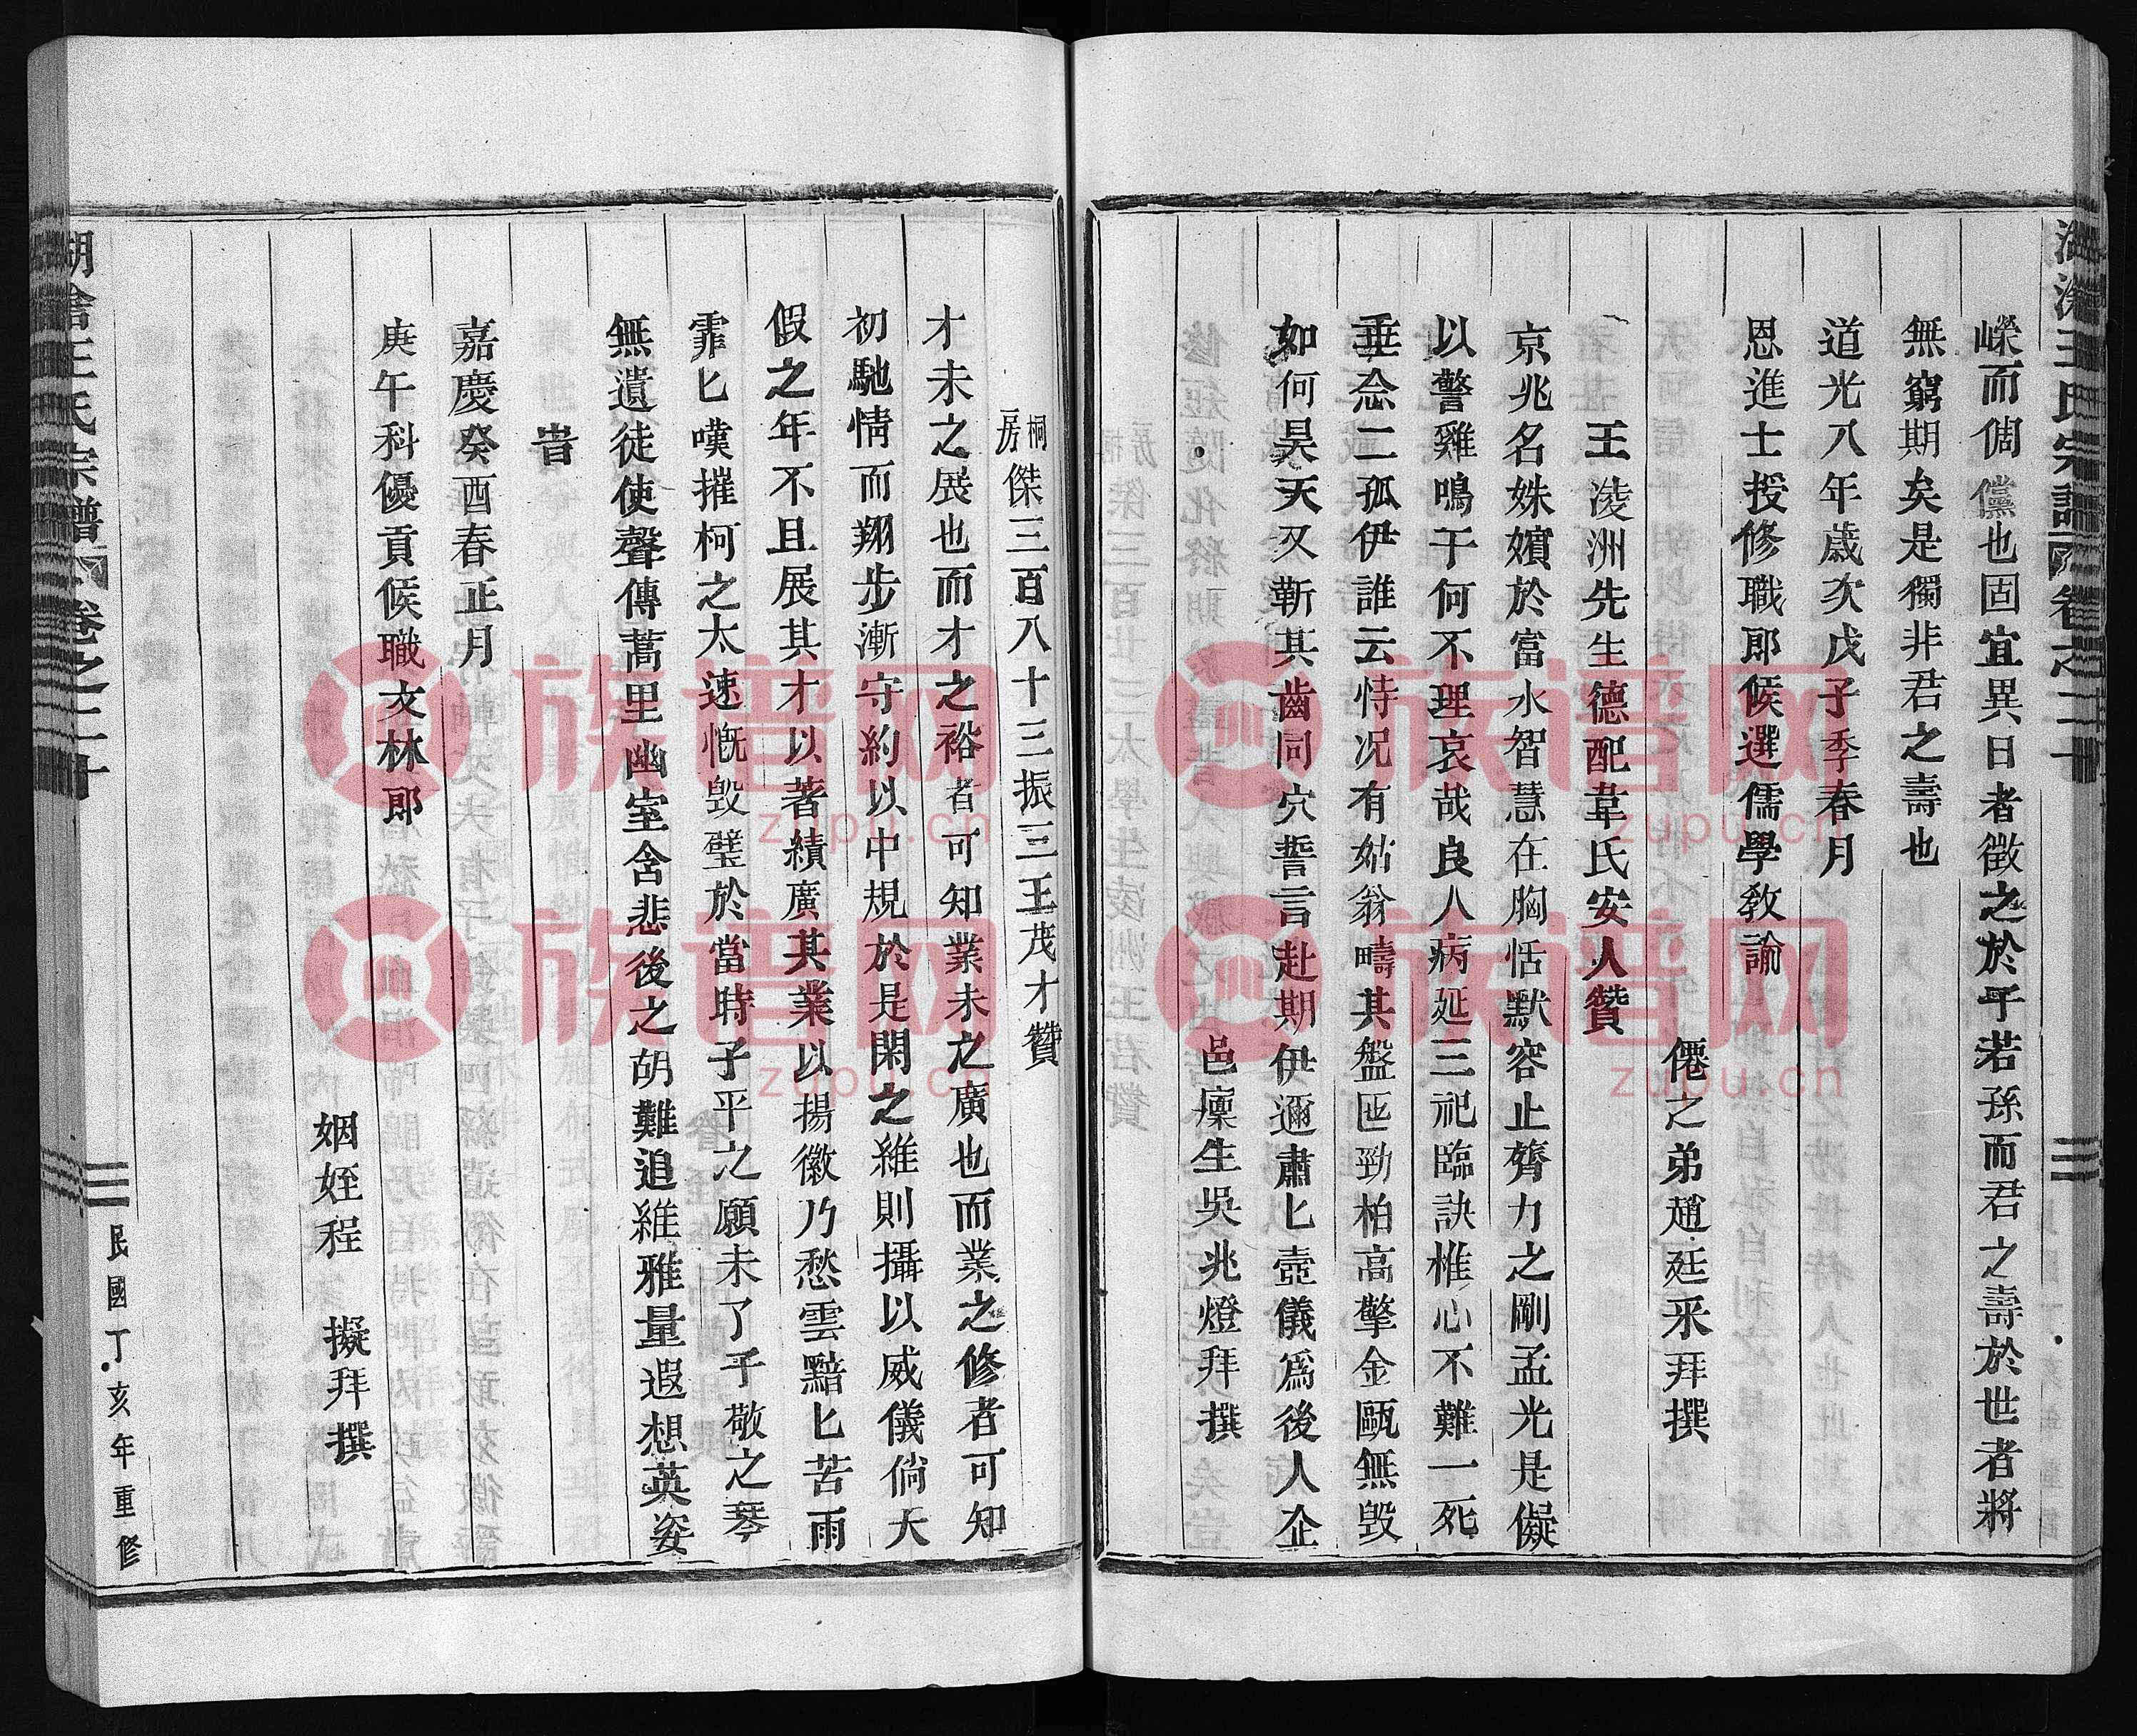 王氏宗譜 卷之二十
嶸而倜儻也固宜異日者徵之於乎若孫而君之壽於世者將
無窮期矣是獨非君之壽也
道光八年歲次戊子季春月
恩進士授修職郎候選儒學敎諭
僊之弟趙廷采拜撰
王淩洲先生德配韋氏安人贊
京兆名姝嬪於富水智慧在胸恬默容止膂力之剛孟光是儗
以警雞鳴于何不理哀哉良人病延三祀臨訣椎心不難一死
垂念二孤伊誰云恃况有姑翁疇其盤匜勁柏高擎金甌無毀
如何昊天又靳其齒同穴誓言赴期伊邇肅匕壼儀爲後人企
邑廩生吳兆燈拜撰
桐房傑三百八十三振三王茂才贊
才未之展也而才之裕者可知業未之廣也而業之修者可知
初馳情而翔步漸守約以中規於是閑之維則攝以威儀倘天
假之年不且展其才以著績廣其業以揚徽乃愁雲黯匕苦雨
霏匕嘆摧柯之太速慨毀璧於當時子平之願未了子敬之琴
無遺徒使聲傳蒿里幽室含悲後之胡難追維雅量遐想英姿
旹
嘉慶癸酉春正月
庚午科優貢候職文林郎
姻姪程 擬拜撰
王氏宗譜 卷之二十
民國丁亥年重修
族谱网 zupu.cn
族谱网 zupu.cn
族谱网 zupu.cn
族谱网 zupu.cn